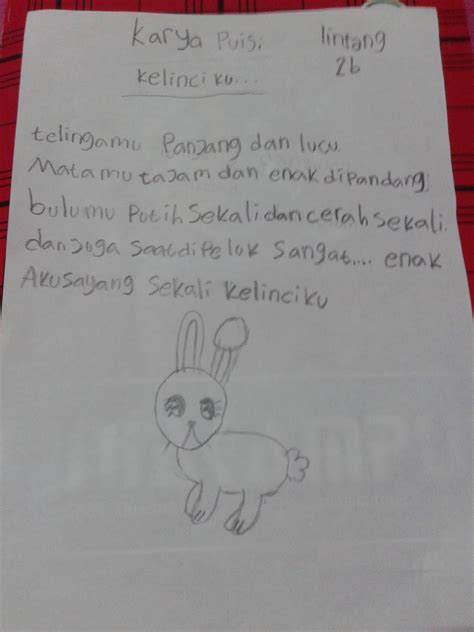 Karya Puisi lintang
2b
kelinciku...
telingamu Panjang dan lucu.
Matamu tajam dan enak dipandang.
bulumu Putih Sekali dan cerah sekali.
dan Joga Saat di Peluk Sangat.... enak
Aku sayang Sekali kelinciku